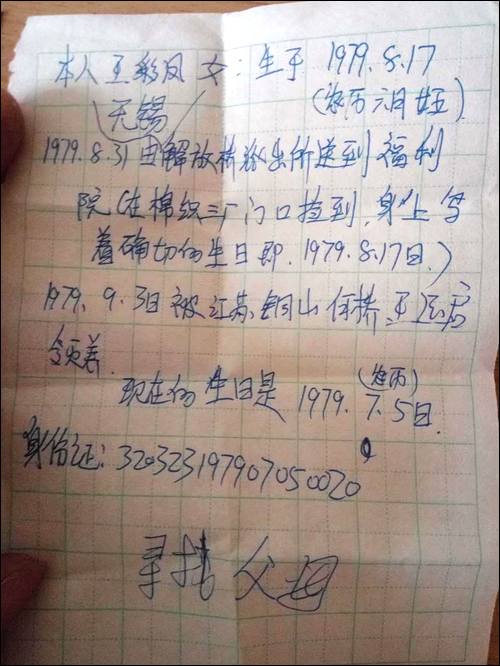 本人王彩凤 女：生于 1979.8.17
无锡
(农历六月廿五)
1979.8.31 由解放桥派出所送到福利
院(在棉织三厂门口捡到,身上写
着确切的生日即.1979.8.17日.)
1979.9.3日被江苏铜山何桥 王
领养.
现在的生日是 1979.7.5日.
(农历)
身份证：320323197907050020
寻找父母